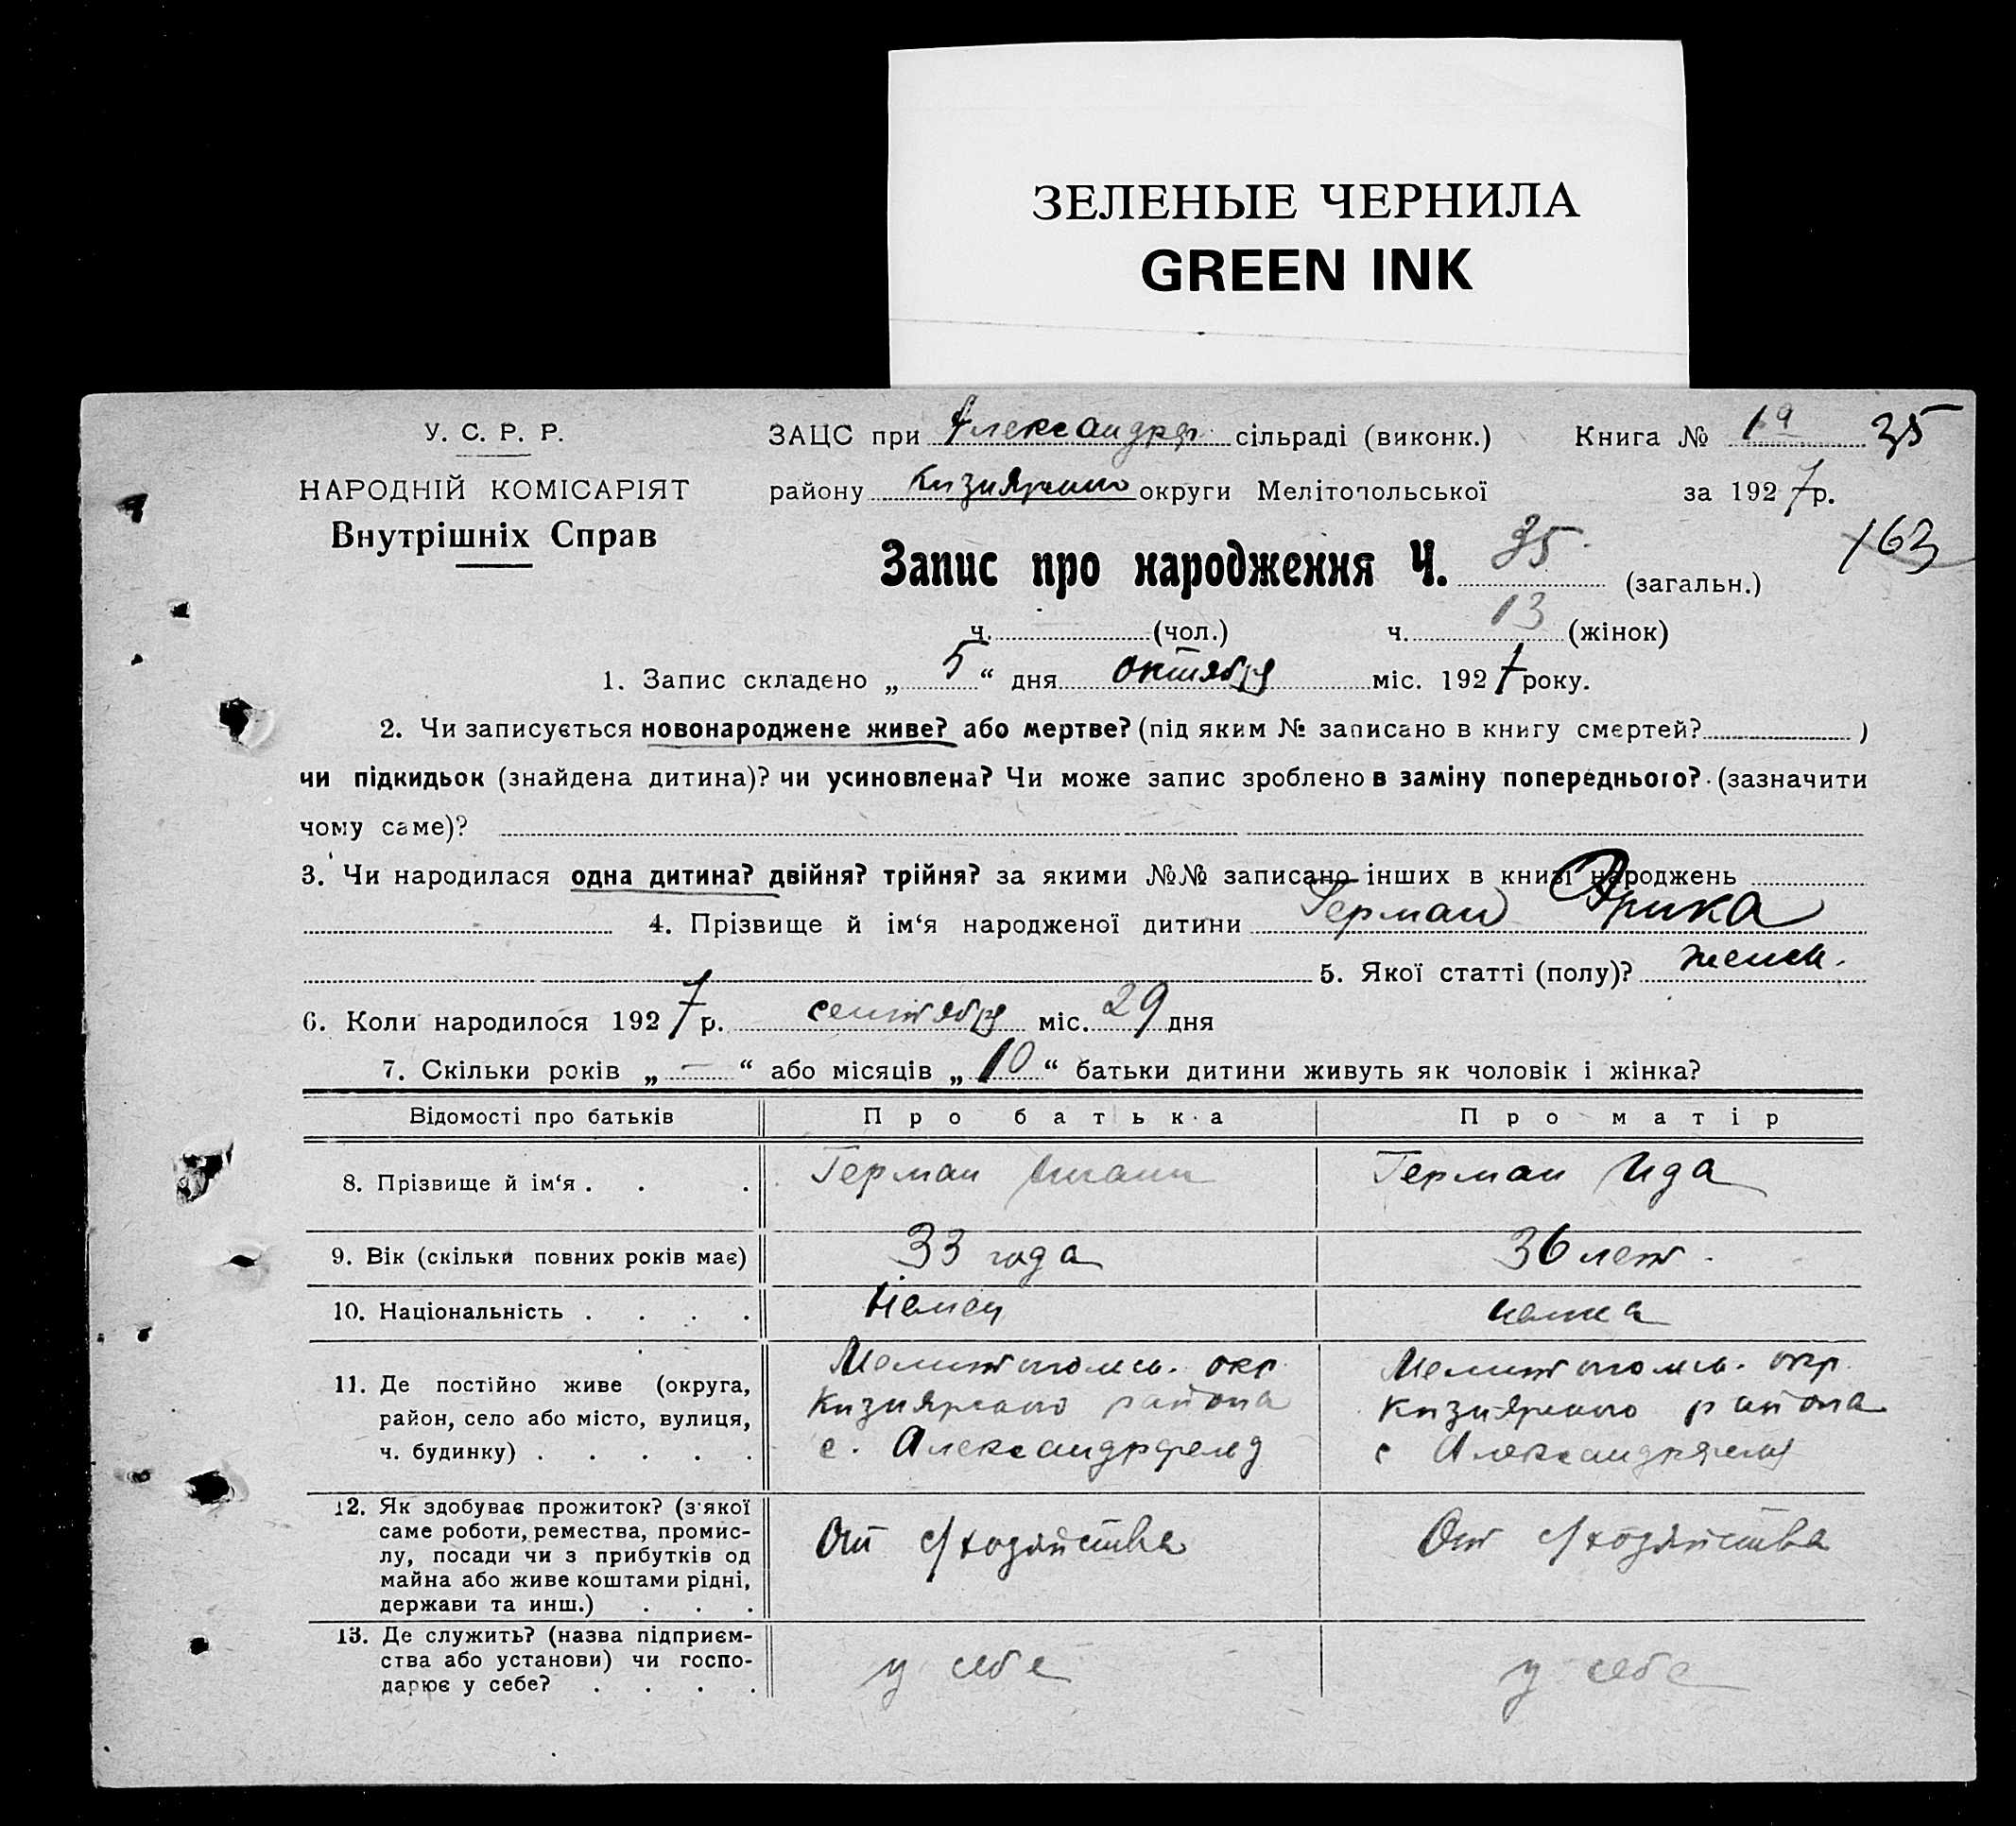 ЗЕЛЕНЫЕ ЧЕРНИЛА
GREEN INK
У. С. Р. Р.
НАРОДНІЙ КОМІСАРІЯТ
Внутрішніх Справ
ЗАЦС при Александрф. сільраді (виконк.) Книга № 1а 35
району Кизиярского округи Мелітопольської за 1927 р.
163
Запис про народження Ч. 35 (загальн.)
ч. (чол.) ч. 13 (жінок)
1. Запис складено „ 5 “ дня октября міс. 1927 року.
2. Чи записується новонароджене живе? або мертве? (під яким № записано в книгу смертей? )
чи підкидьок (знайдена дитина)? чи усиновлена? Чи може запис зроблено в заміну попереднього? (зазначити
чому саме)?
3. Чи народилася одна дитина? двійня? трійня? за якими №№ записано інших в книзі народжень
4. Прізвище й ім‘я народженої дитини Герман Эрика
5. Якої статті (полу)? женск.
6. Коли народилося 1927 р. сентября міс. 29 дня
7. Скільки років „ — “ або місяців „ 10 “ батьки дитини живуть як чоловік і жінка?
Відомості про батьків Про батька Про матір
8. Прізвище й ім‘я . . . Герман Герман Ида
9. Вік (скільки повних років має) 33 года 36 лет.
10. Національність . . . . Немец немка
11. Де постійно живе (округа, Мелитопольск. окр. Мелитопольск. окр.
район, село або місто, вулиця, Кизиярского района Кизиярского района
ч. будинку) . . . . . с. Александрфельд с Александрфельд
12. Як здобуває прожиток? (з якої
саме роботи, ремества, промис-
лу, посади чи з прибутків од От с/хозяйства От с/хозяйства
майна або живе коштами рідні,
держави та инш.) . . .
13. Де служить? (назва підприєм-
ства або установи) чи госпо- у себе у себе
дарює у себе? . . . .